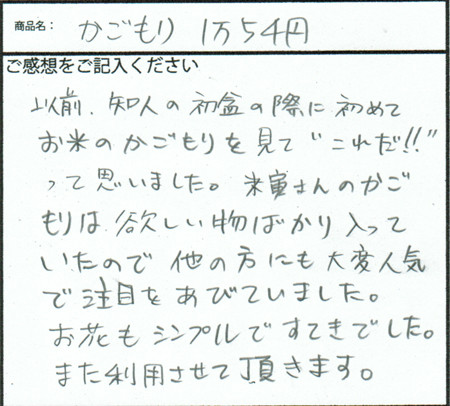 商品名： かごもり 1万54円
ご感想をご記入ください
以前、知人の初盆の際に初めて
お米のかごもりを見て"これだ!!"
って思いました。米寅さんのかご
もりは欲しい物ばかり入って
いたので他の方にも大変人気
で注目をあびていました。
お花もシンプルですてきでした。
また利用させて頂きます。